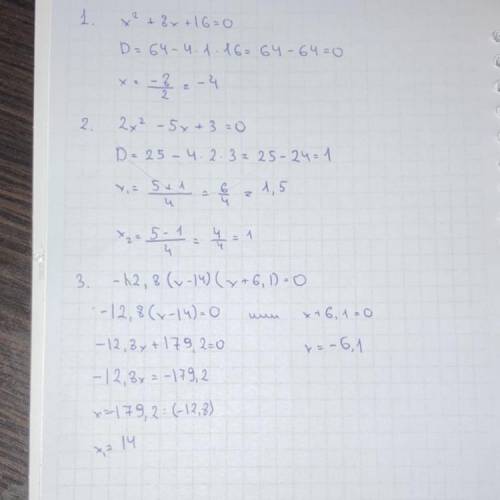 1. x² + 8x + 16 = 0
D = 64 - 4 · 1 · 16 = 64 - 64 = 0
x = -8/2 = -4
2. 2x² - 5x + 3 = 0
D = 25 - 4 · 2 · 3 = 25 - 24 = 1
x₁ = 5+1/4 = 6/4 = 1,5
x₂ = 5-1/4 = 4/4 = 1
3. -12,8(x-14)(x+6,1)=0
-12,8(x-14)=0 или x+6,1=0
-12,8x+179,2=0 x=-6,1
-12,8x=-179,2
x=-179,2:(-12,8)
x₁= 14